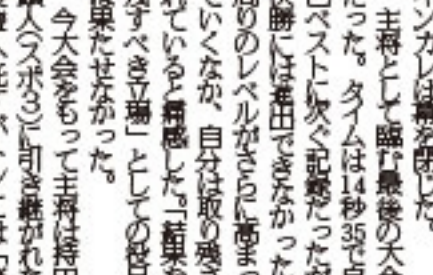 ンカレは幕を閉じた。
主将として臨む最後の大会
だった。タイムは14秒35で
己ベストに次ぐ記録だったが
決勝には進出できなかった
周りのレベルがさらに高まっ
ていくなか、自分は取り残さ
れていると痛感した。「結果を
残すべき立場」としての役目
果たせなかった。
今大会をもって主将は持田
人(スポ3)に引き継がれた